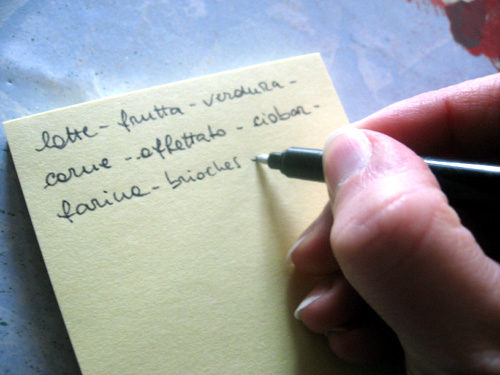 latte - frutta - verdura -
carne - affettato - ciobar -
farina - brioches -